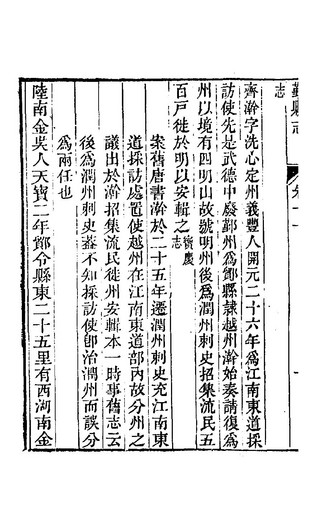 鄞縣志
卷十一
志
齊澣字洗心定州義豐人開元二十六年爲江南東道採
訪使先是武德中廢鄞州爲鄮縣隸越州澣始奏請復爲
州以境有四明山故號明州後爲潤州刺史招集流民五
百戸徙於明以安輯之寶慶志
案舊唐書澣於二十五年遷潤州刺史充江南東
道採訪處置使越州在江南東道部內故分州之
議出於澣招集流民徙州安輯本一時事舊志云
後爲潤州刺史葢不知採訪使卽治潤州而誤分
爲兩任也
陸南金吳人天寶二年鄮令縣東二十五里有西湖南金